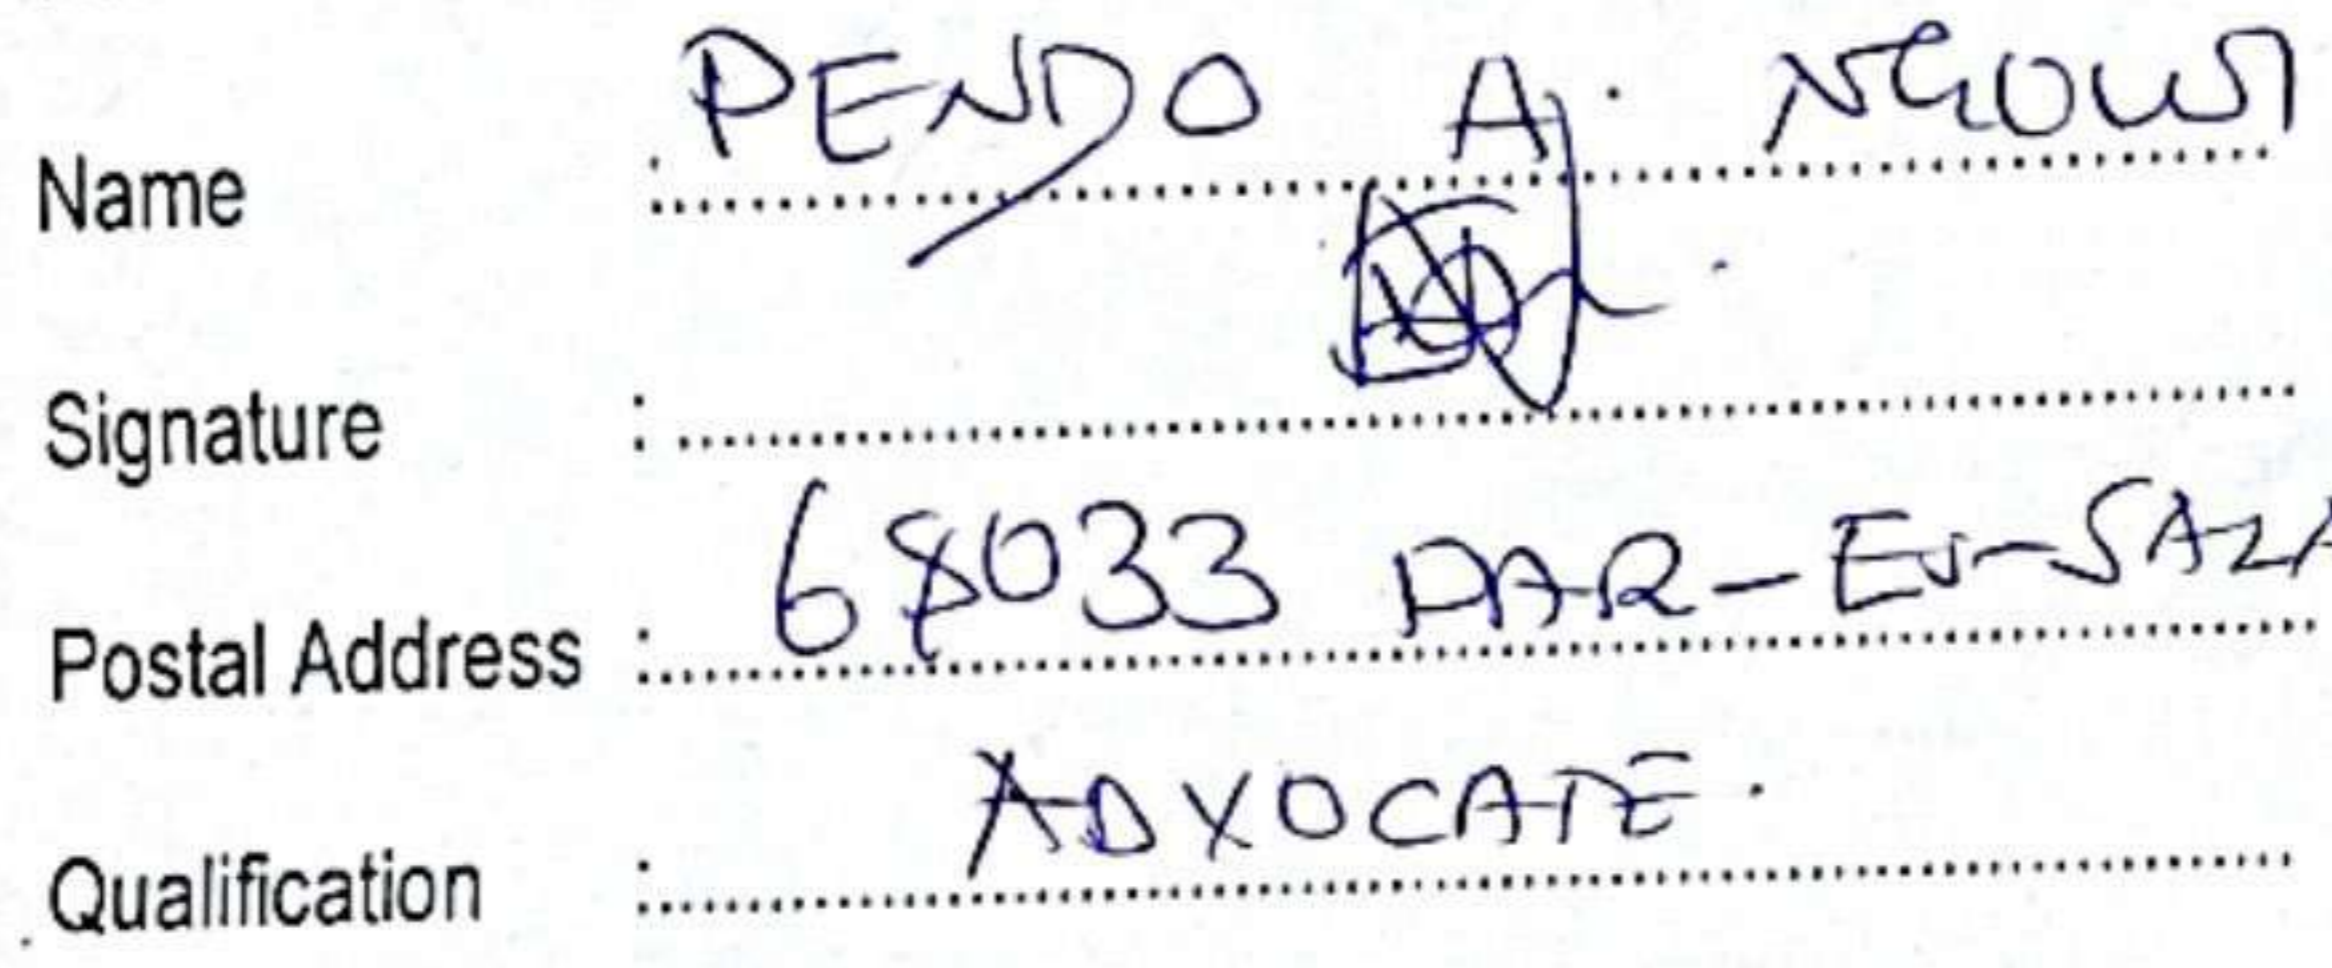 Name : PENDO A. NGOWI
Signature :
Postal Address : 68033 DAR-ES-SALA
Qualification : ADVOCATE.